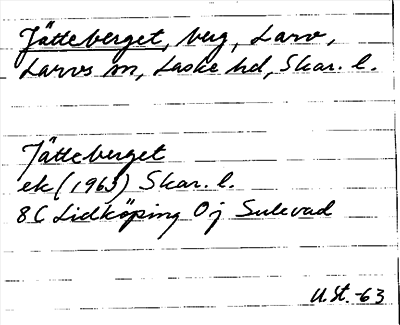 Jätteberget, berg, Larv,
Larvs sn, Laske hd, Skar. l.
Jätteberget
ek (1963) Skar. l.
8C Lidköping 0j Sulevad
U.St. -63